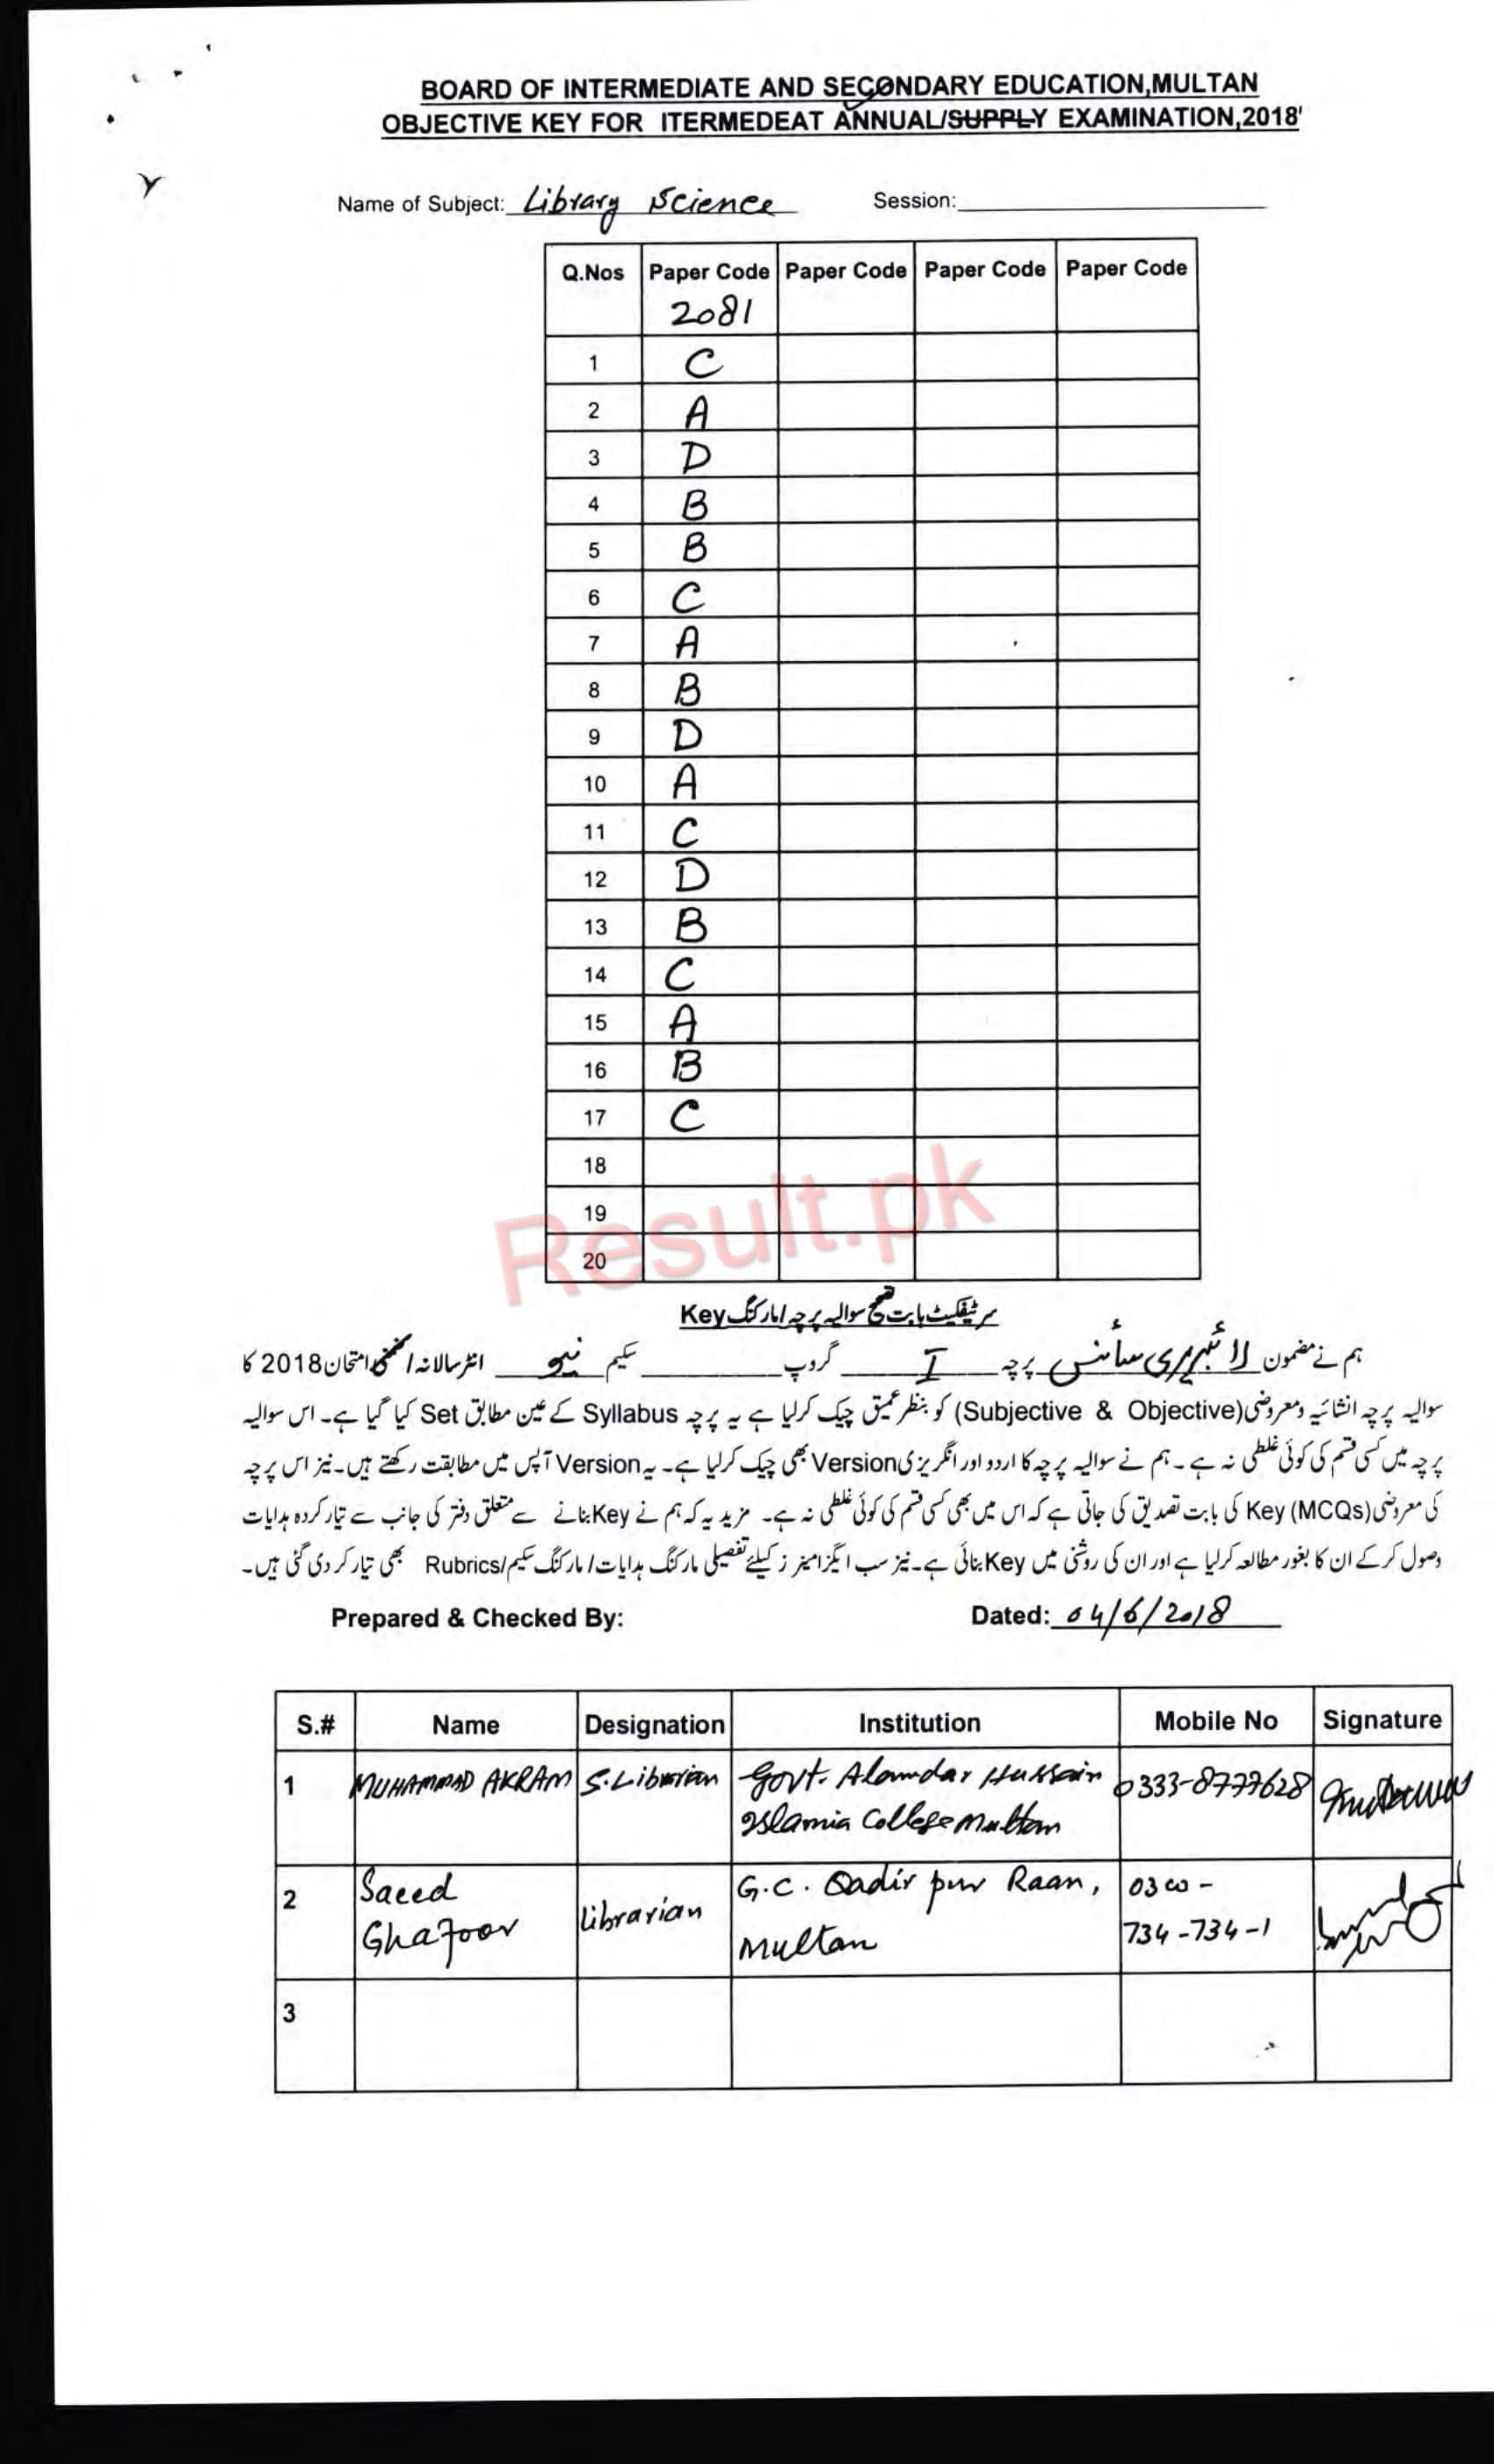 BOARD OF INTERMEDIATE AND SECONDARY EDUCATION,MULTAN
OBJECTIVE KEY FOR ITERMEDEAT ANNUAL/SUPPLY EXAMINATION,2018'
Name of Subject: Library Science Session:
Q.Nos Paper Code Paper Code Paper Code Paper Code
2081
1 C
2 A
3 D
4 B
5 B
6 C
7 A
8 B
9 D
10 A
11 C
12 D
13 B
14 C
15 A
16 B
17 C
18
19
20
Result.pk
سرٹیفکیٹ بابت تصحیح سوالیہ پرچہ / مارکنگ Key
ہم نے مضمون لائبریری سائنس پرچہ I گروپ سکیم نیو انٹر سالانہ / ضمنی امتحان 2018 کا
سوالیہ پرچہ انشائیہ ومعروضی (Subjective & Objective) کو بنظر عمیق چیک کرلیا ہے یہ پرچہ Syllabus کے عین مطابق Set کیا گیا ہے۔ اس سوالیہ
پرچہ میں کسی قسم کی کوئی غلطی نہ ہے۔ ہم نے سوالیہ پرچہ کا اردو اور انگریزی Version بھی چیک کرلیا ہے۔ یہ Version آپس میں مطابقت رکھتے ہیں۔ نیز اس پرچہ
کی معروضی (MCQs) Key کی بابت تصدیق کی جاتی ہے کہ اس میں بھی کسی قسم کی کوئی غلطی نہ ہے۔ مزید یہ کہ ہم نے Key بنانے سے متعلق دفتر کی جانب سے تیار کردہ ہدایات
وصول کرکے ان کا بغور مطالعہ کرلیا ہے اور ان کی روشنی میں Key بنائی ہے۔ نیز سب ایگزامینرز کیلئے تفصیلی مارکنگ ہدایات / مارکنگ سکیم / Rubrics بھی تیار کر دی گئی ہیں۔
Prepared & Checked By: Dated: 04/6/2018
S.# Name Designation Institution Mobile No Signature
1 MUHAMMAD AKRAM S.Librarian Govt. Alamdar Hussain 0333-8777628
Islamia College Multan
2 Saeed Ghafoor Librarian G.C. Qadir pur Raan, 0300-
Multan 734-734-1
3